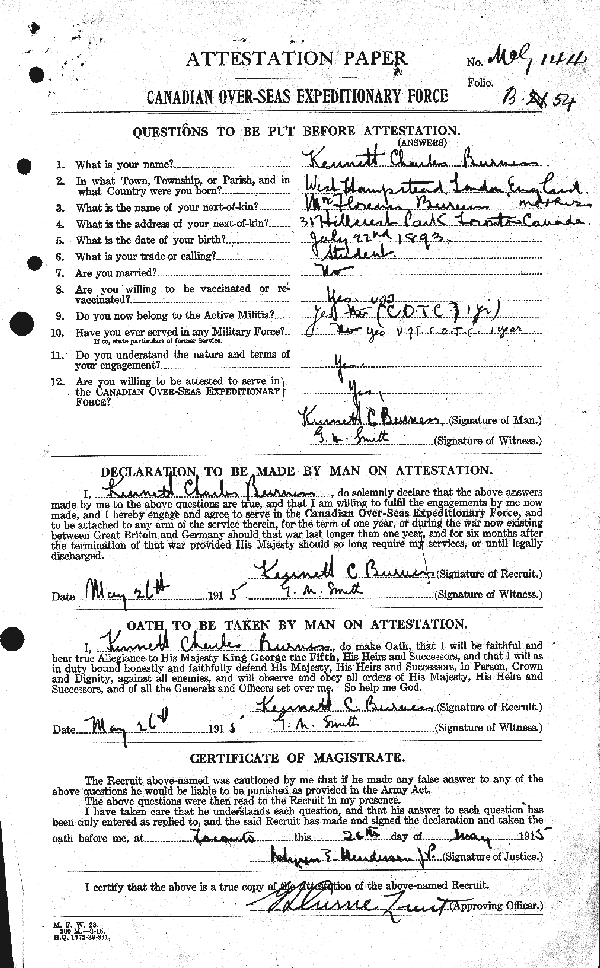 ATTESTATION PAPER
No. McG 144
Folio.
B. 54
CANADIAN OVER-SEAS EXPEDITIONARY FORCE
QUESTIONS TO BE PUT BEFORE ATTESTATION.
(ANSWERS)
1. What is your name? Kenneth Charles Burness
2. In what Town, Township, or Parish, and in what Country were you born? West Hampstead, London, England
3. What is the name of your next-of-kin? Florence Burness mother
4. What is the address of your next-of-kin? Hillcrest Park Toronto Canada
5. What is the date of your birth? July 22nd 1893.
6. What is your trade or calling? Student
7. Are you married? No
8. Are you willing to be vaccinated or re-vaccinated? Yes yes
9. Do you now belong to the Active Militia? Yes No (C.O.T.C.)
10. Have you ever served in any Military Force? No yes C.O.T.C. 1 year
If so, state particulars of former Service.
11. Do you understand the nature and terms of your engagement? Yes
12. Are you willing to be attested to serve in the CANADIAN OVER-SEAS EXPEDITIONARY FORCE? Yes
Kenneth C Burness (Signature of Man.)
G. M. Smith (Signature of Witness.)
DECLARATION TO BE MADE BY MAN ON ATTESTATION.
I, Kenneth Charles Burness, do solemnly declare that the above answers
made by me to the above questions are true, and that I am willing to fulfil the engagements by me now
made, and I hereby engage and agree to serve in the Canadian Over-Seas Expeditionary Force, and
to be attached to any arm of the service therein, for the term of one year, or during the war now existing
between Great Britain and Germany should that war last longer than one year, and for six months after
the termination of that war provided His Majesty should so long require my services, or until legally
discharged.
Kenneth C Burness (Signature of Recruit.)
Date May 26th 1915 G. M. Smith (Signature of Witness.)
OATH TO BE TAKEN BY MAN ON ATTESTATION.
I, Kenneth Charles Burness, do make Oath, that I will be faithful and
bear true Allegiance to His Majesty King George the Fifth, His Heirs and Successors, and that I will as
in duty bound honestly and faithfully defend His Majesty, His Heirs and Successors, in Person, Crown
and Dignity, against all enemies, and will observe and obey all orders of His Majesty, His Heirs and
Successors, and of all the Generals and Officers set over me. So help me God.
Kenneth C Burness (Signature of Recruit.)
Date May 26th 1915 G. M. Smith (Signature of Witness.)
CERTIFICATE OF MAGISTRATE.
The Recruit above-named was cautioned by me that if he made any false answer to any of the
above questions he would be liable to be punished as provided in the Army Act.
The above questions were then read to the Recruit in my presence.
I have taken care that he understands each question, and that his answer to each question has
been duly entered as replied to, and the said Recruit has made and signed the declaration and taken the
oath before me, at Toronto this 26th day of May 1915
E. Henderson J.P. (Signature of Justice.)
I certify that the above is a true copy of the Attestation of the above-named Recruit.
(Approving Officer.)
M. F. W. 23.
200 M.—3-15.
H.Q. 1772-39-841.